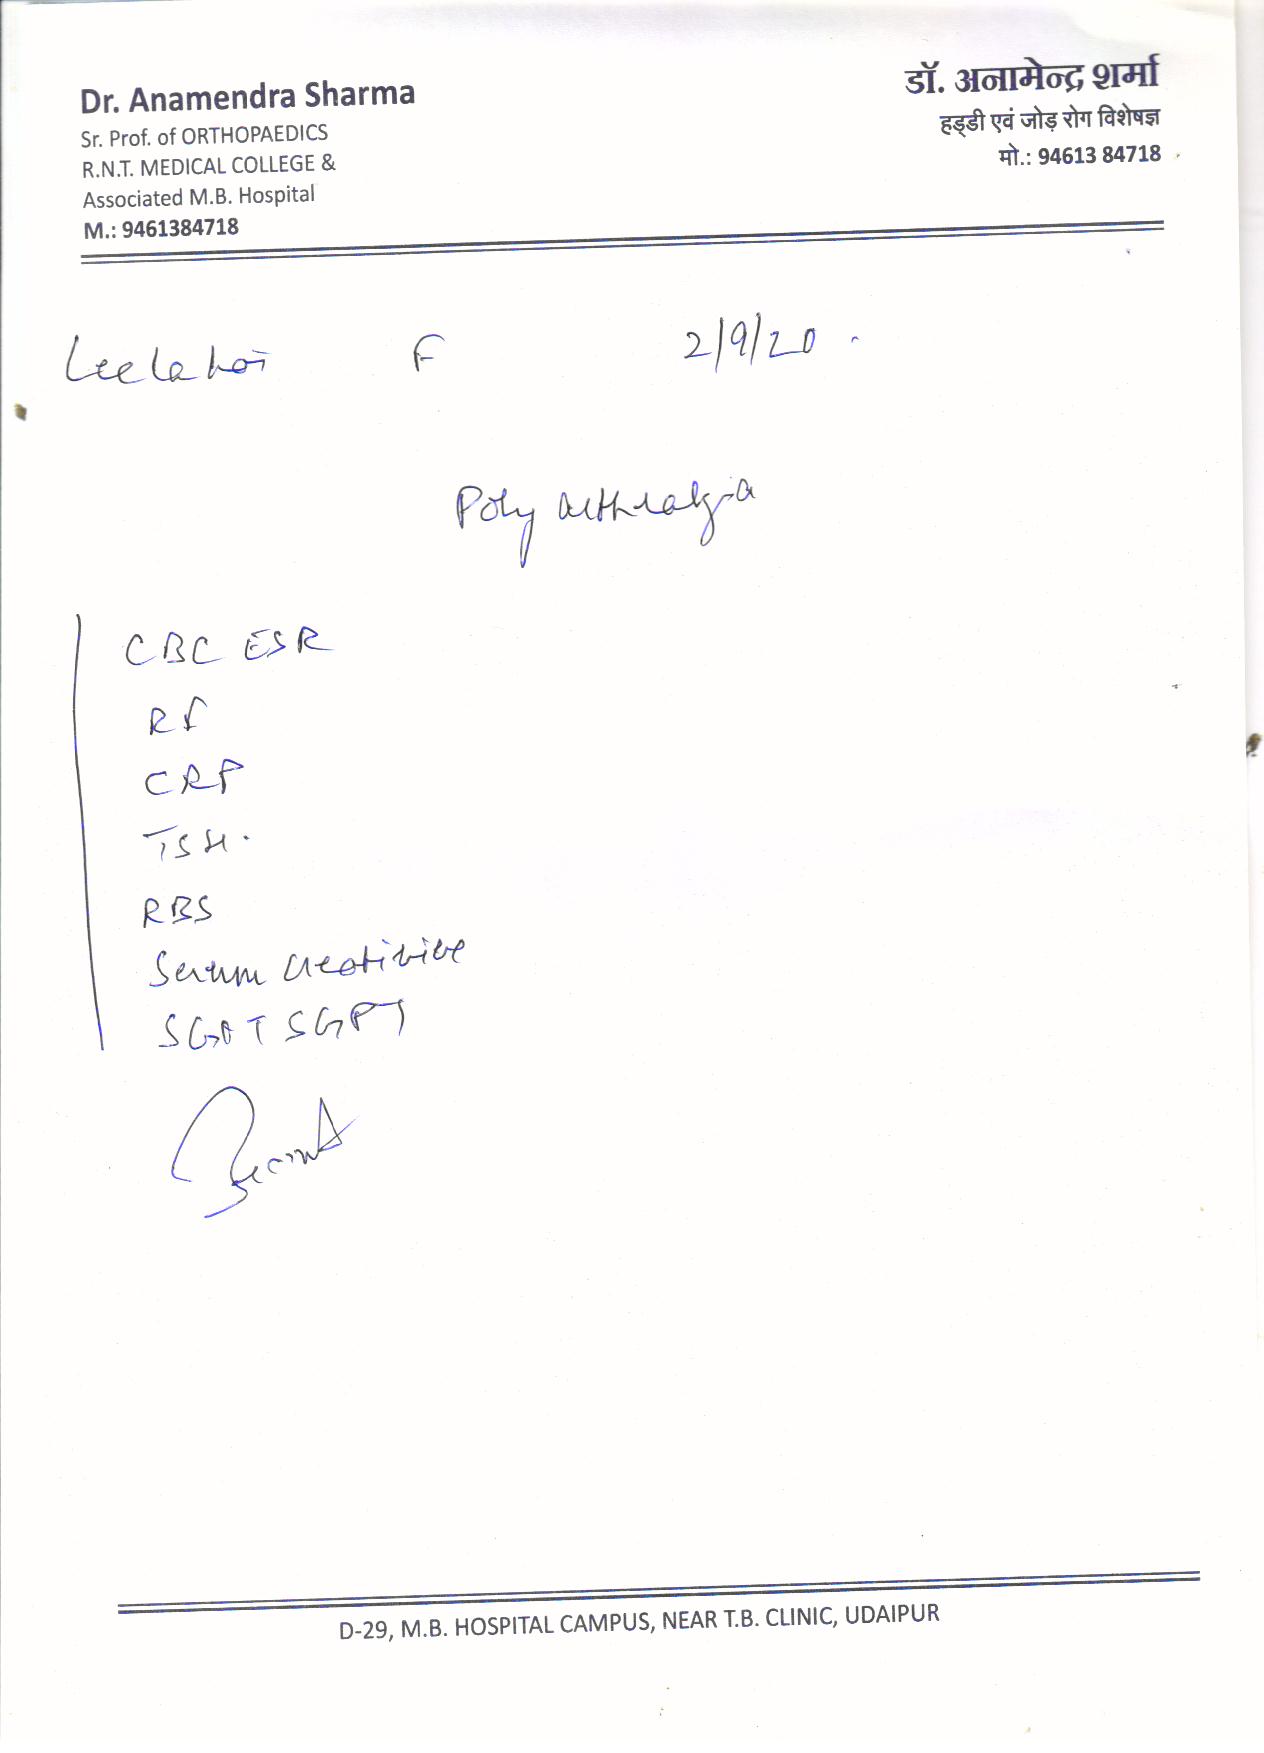 Dr. Anamendra Sharma
Sr. Prof. of ORTHOPAEDICS
R.N.T. MEDICAL COLLEGE &
Associated M.B. Hospital
M.: 9461384718
डॉ. अनामेन्द्र शर्मा
हड्डी एवं जोड़ रोग विशेषज्ञ
मो.: 94613 84718
Leelabai F 2/9/20
Poly arthralgia
CBC ESR
RF
CRP
TSH.
RBS
Serum creatinine
SGOT SGPT
D-29, M.B. HOSPITAL CAMPUS, NEAR T.B. CLINIC, UDAIPUR